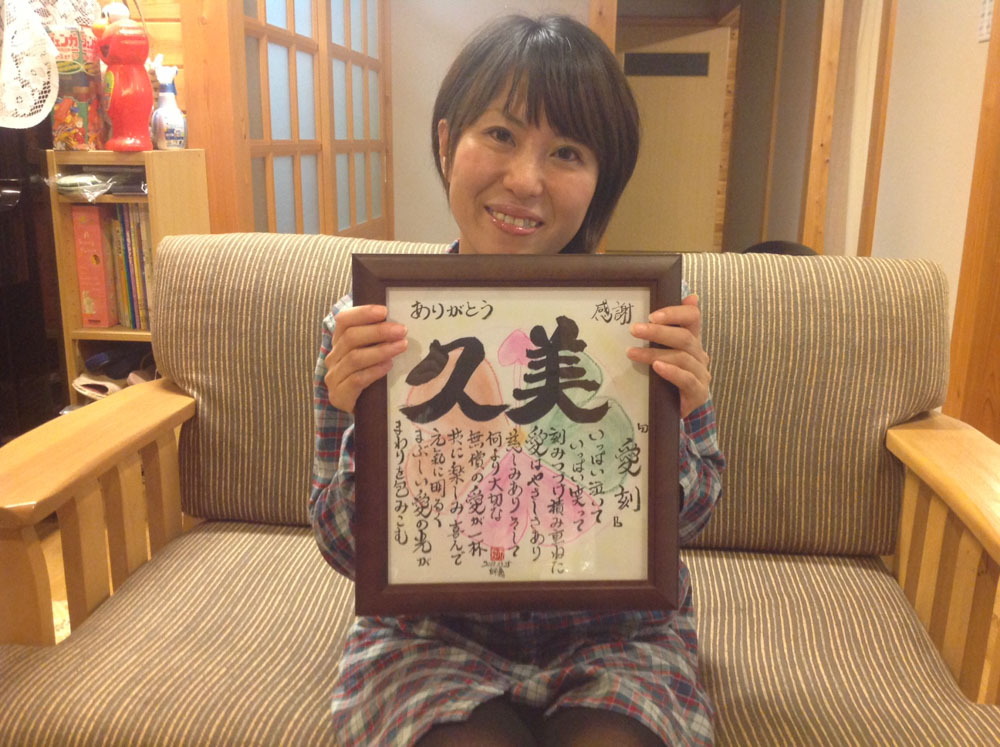 ありがとう
感謝
久美
『愛刻』
いっぱい泣いて
いっぱい笑って
刻みつづけ積み重ねた
愛はやさしさあり
慈しみありそして
何より大切な
無償の愛が一杯
共に楽しみ喜んで
元気に明るく
まぶしい愛の光が
まわりを包みこむ